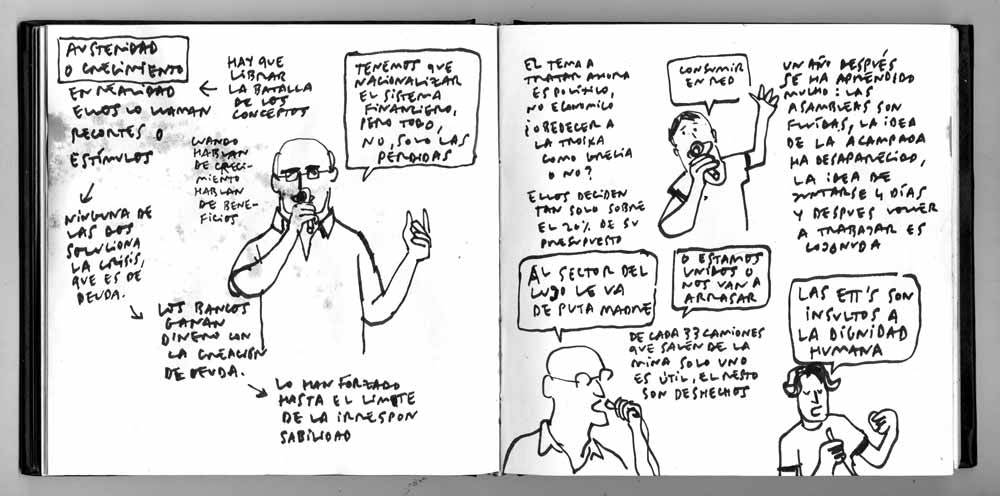 AUSTERIDAD
O CRECIMIENTO
EN REALIDAD
ELLOS LO LLAMAN
RECORTES O
ESTÍMULOS
HAY QUE
LIBRAR
LA BATALLA
DE LOS
CONCEPTOS
CUANDO
HABLAN
DE CRECI-
MIENTO
HABLAN
DE BENE-
FICIOS
TENEMOS QUE
NACIONALIZAR
EL SISTEMA
FINANCIERO,
PERO TODO,
NO, SOLO LAS
PÉRDIDAS
NINGUNA DE
LAS DOS
SOLUCIONA
LA CRISIS,
QUE ES DE
DEUDA.
LOS BANCOS
GANAN
DINERO CON
LA CREACIÓN
DE DEUDA.
LO HAN FORZADO
HASTA EL LÍMITE
DE LA IRRESPON
SABILIDAD
EL TEMA A
TRATAR AHORA
ES POLÍTICO,
NO ECONOMICO
¿OBEDECER A
LA TROIKA
COMO GRECIA
O NO?
ELLOS DECIDEN
TAN SOLO SOBRE
EL 20% DE SU
PRESUPUESTO
CONSUMIR
EN RED
UN AÑO DESPUÉS
SE HA APRENDIDO
MUCHO: LAS
ASAMBLEAS SON
FLUÍDAS, LA IDEA
DE LA ACAMPADA
HA DESAPARECIDO,
LA IDEA DE
JUNTARSE 4 DÍAS
Y DESPUES VOLVER
A TRABAJAR ES
COJONUDA
AL SECTOR DEL
LUJO LE VA
DE PUTA MADRE
O ESTAMOS
UNIDOS O
NOS VAN A
ARRASAR
DE CADA 33 CAMIONES
QUE SALEN DE LA
MINA SOLO UNO
ES ÚTIL, EL RESTO
SON DESHECHOS
LAS ETT'S SON
INSULTOS A
LA DIGNIDAD
HUMANA